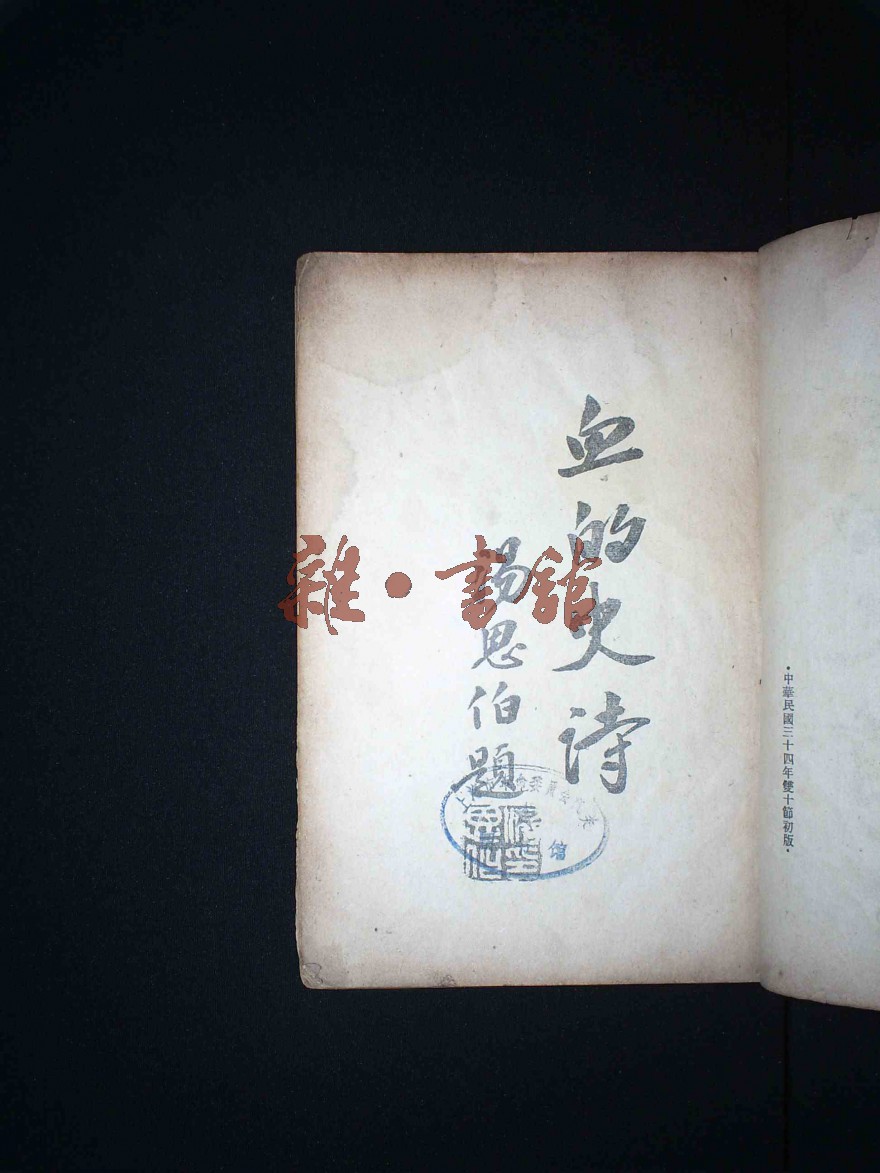 血的史诗
湯思伯題
雜·書館
•中華民國三十四年雙十節初版•